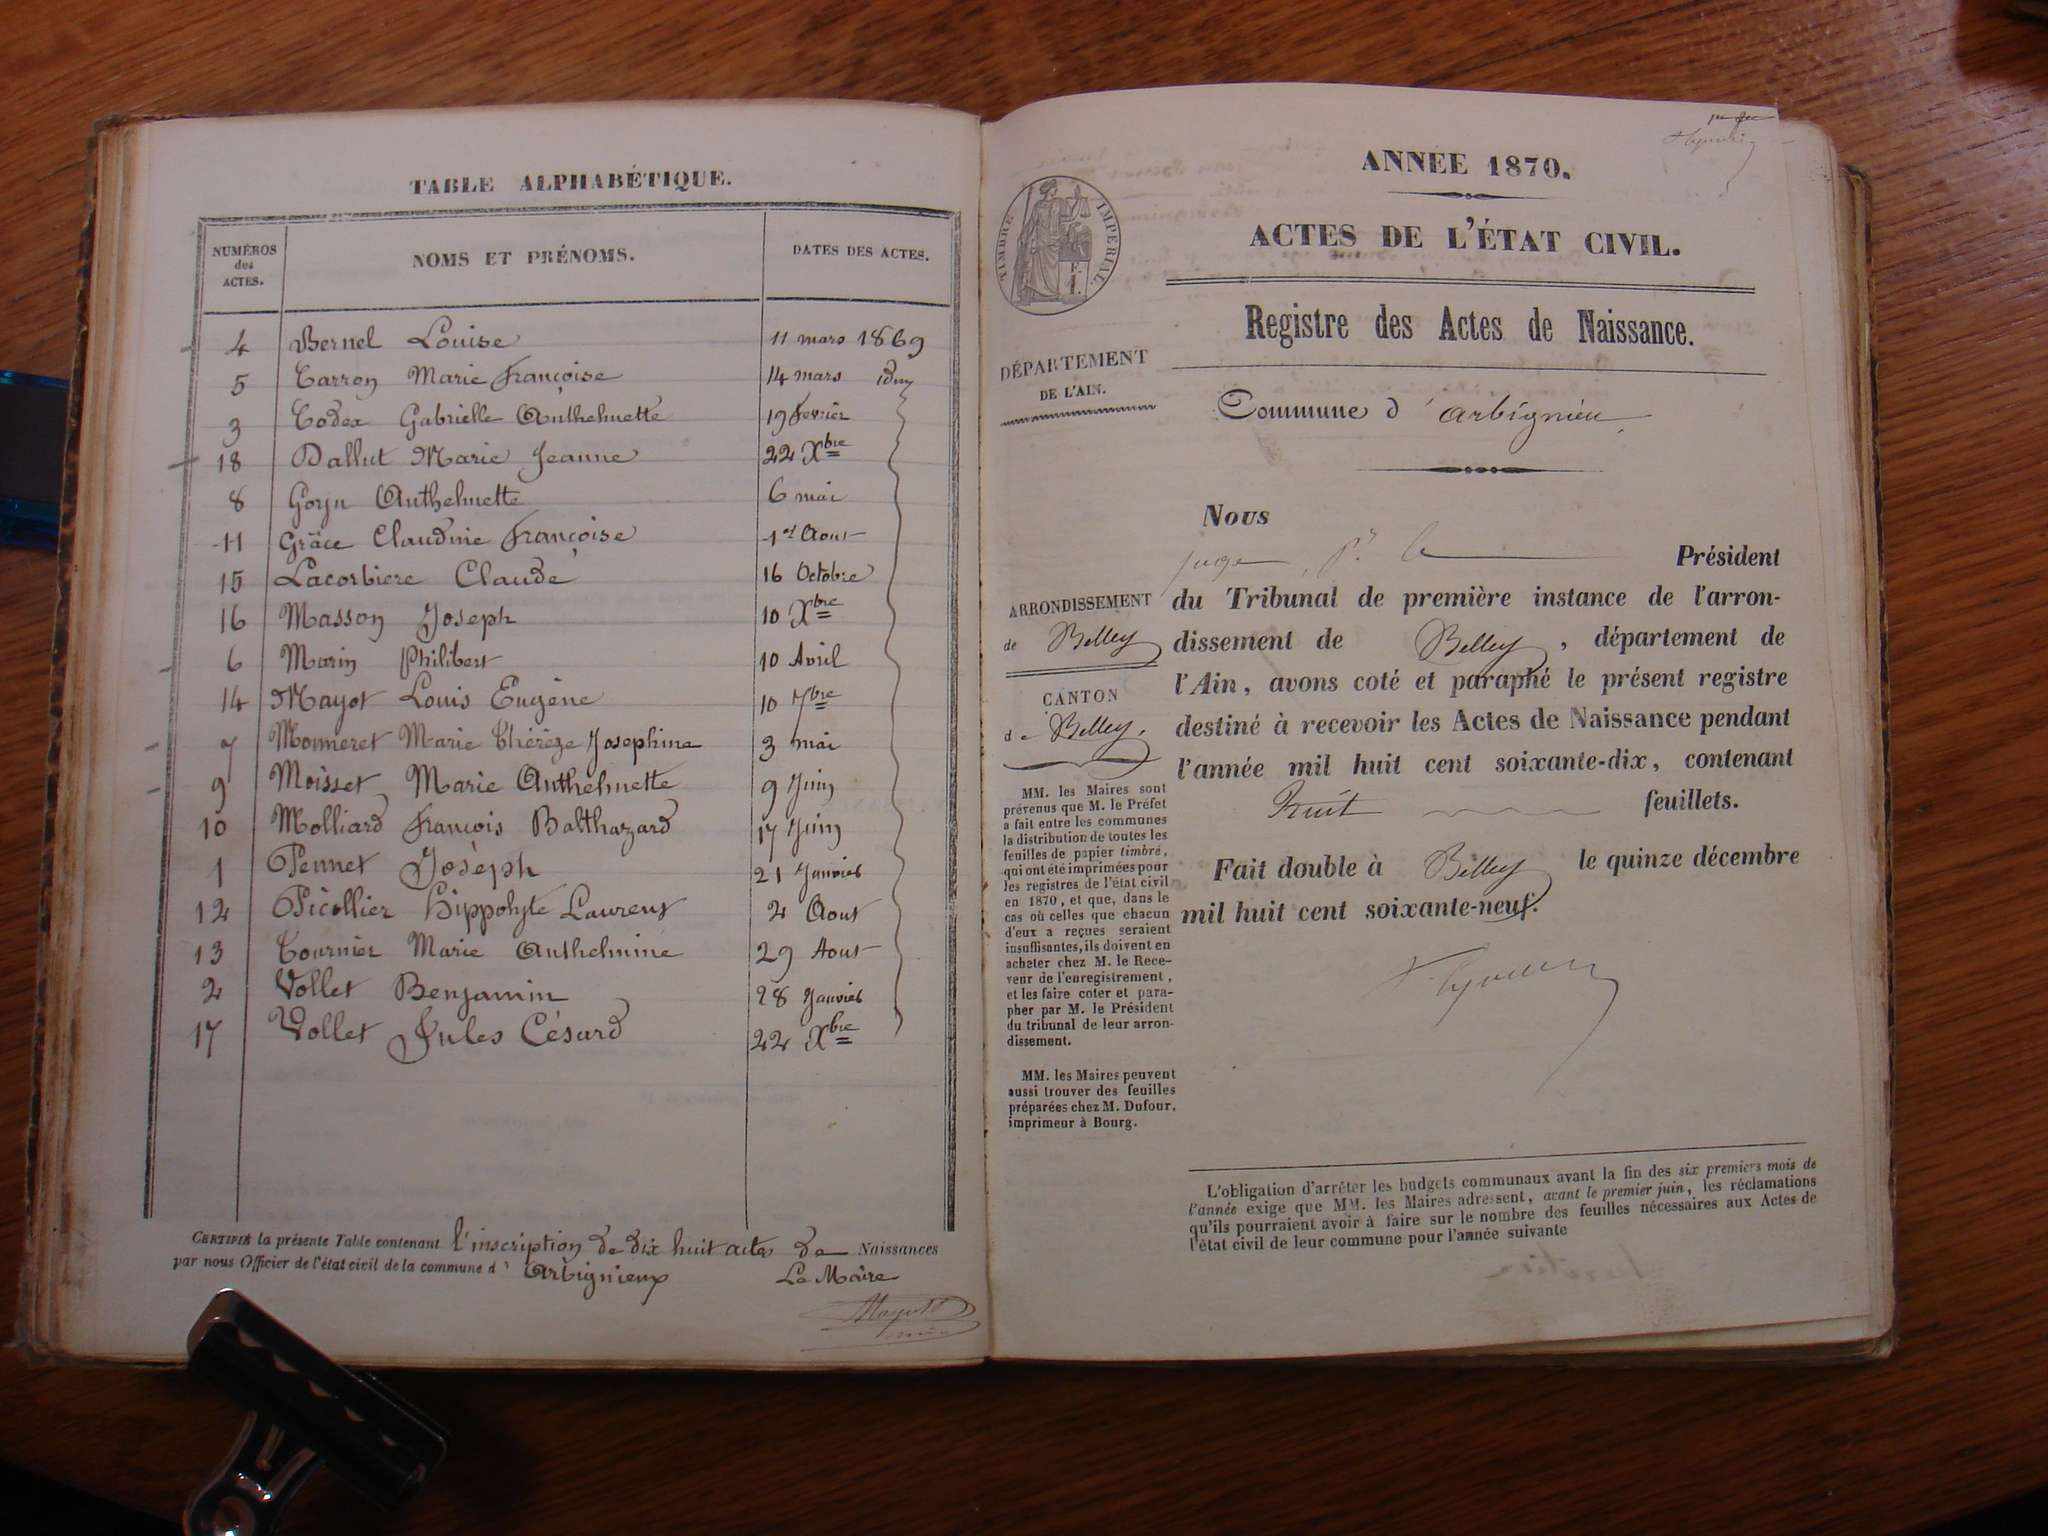 TABLE ALPHABÉTIQUE.
NUMÉROS des ACTES. NOMS ET PRÉNOMS. DATES DES ACTES.
4 Bernel Louise 11 mars 1869
5 Carron Marie Françoise 14 mars idem
3 Codex Gabrielle Anthelmette 19 Fevrier
18 Dallut Marie Jeanne 22 Xbre
8 Goyn Anthelmette 6 mai
11 Grâce Claudine Françoise 1er Aout
15 Lacorbiere Claude 16 Octobre
16 Masson Joseph 10 Xbre
6 Marin Philibert 10 Avril
14 Mayot Louis Eugène 10 7bre
7 Monneret Marie Thérèze Josephine 3 mai
9 Moisset Marie Anthelmette 9 Juin
10 Molliard François Balthazard 17 Juin
1 Pennet Joseph 21 Janvier
12 Picollier Hippolyte Laurent 2 Aout
13 Tournier Marie Anthelmine 29 Aout
2 Vollet Benjamin 28 Janvier
17 Vollet Jules Césard 22 Xbre
CERTIFIÉ la présente Table contenant l'inscription de dix huit actes de Naissances
par nous Officier de l'état civil de la commune d' Arbignieux Le Maire
ANNÉE 1870.
ACTES DE L'ÉTAT CIVIL.
TIMBRE IMPÉRIAL
Registre des Actes de Naissance.
DÉPARTEMENT
DE L'AIN.
Commune d'arbignieu
ARRONDISSEMENT
de Belley
CANTON
de Belley.
MM. les Maires sont
prévenus que M. le Préfet
a fait entre les communes
la distribution de toutes les
feuilles de papier timbré,
qui ont été imprimées pour
les registres de l'état civil
en 1870, et que, dans le
cas où celles que chacun
d'eux a reçues seraient
insuffisantes, ils doivent en
acheter chez M. le Rece-
veur de l'enregistrement,
et les faire coter et para-
pher par M. le Président
du tribunal de leur arron-
dissement.
MM. les Maires peuvent
aussi trouver des feuilles
préparées chez M. Dufour,
imprimeur à Bourg.
Nous
juge, pr le Président
du Tribunal de première instance de l'arron-
dissement de Belley, département de
l'Ain, avons coté et paraphé le présent registre
destiné à recevoir les Actes de Naissance pendant
l'année mil huit cent soixante-dix, contenant
huit feuillets.
Fait double à Belley le quinze décembre
mil huit cent soixante-neuf.
L'obligation d'arrêter les budgets communaux avant la fin des six premiers mois de
l'année exige que MM. les Maires adressent, avant le premier juin, les réclamations
qu'ils pourraient avoir à faire sur le nombre des feuilles nécessaires aux Actes de
l'état civil de leur commune pour l'année suivante